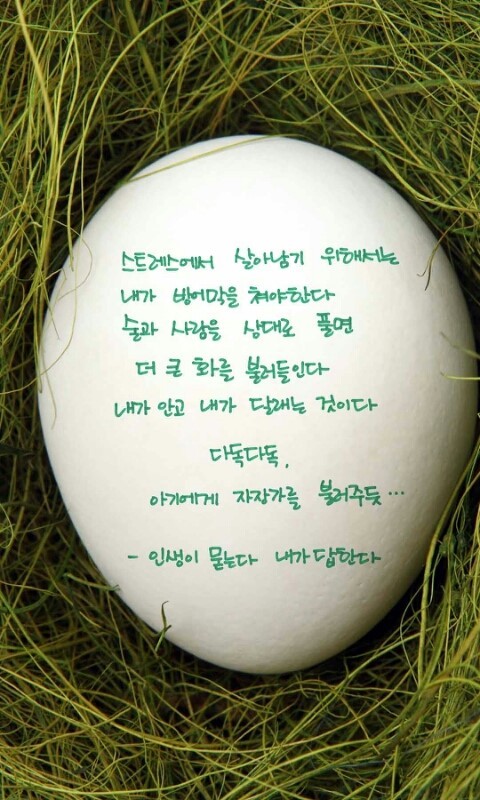 스트레스에서 살아남기 위해서는
내가 방어막을 쳐야한다
술과 사랑을 상대로 풀면
더 큰 화를 불러들인다
내가 안고 내가 달래는 것이다
다독다독,
아기에게 자장가를 불러주듯…
- 인생이 묻는다 내가 답한다